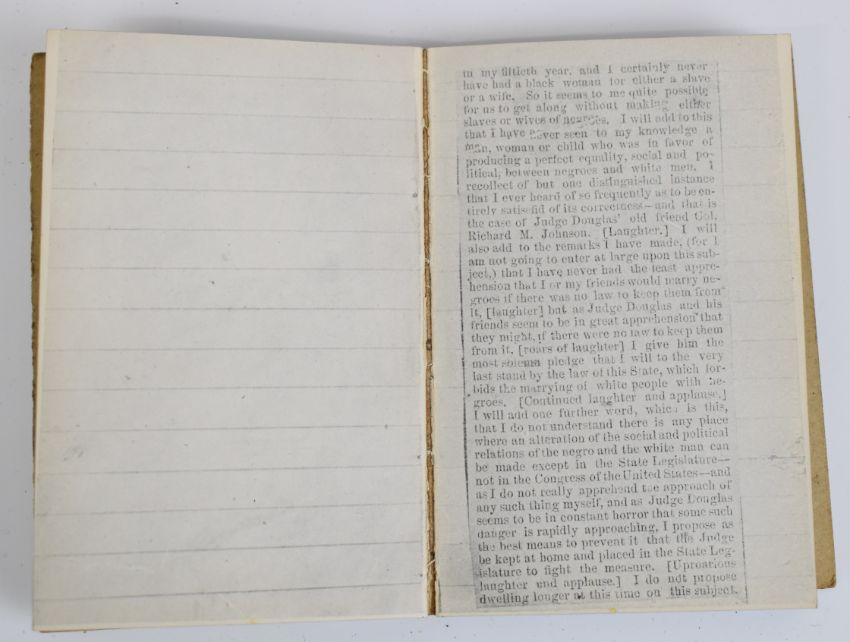 in my fiftieth year, and I certainly never
have had a black woman for either a slave
or a wife. So it seems to me quite possible
for us to get along without making either
slaves or wives of negroes. I will add to this
that I have never seen to my knowledge a
man, woman or child who was in favor of
producing a perfect equality, social and po-
litical, between negroes and white men. I
recollect of but one distinguished instance
that I ever heard of so frequently as to be en-
tirely satisefid of its correctness—and that is
the case of Judge Douglas' old friend Col.
Richard M. Johnson. [Laughter.] I will
also add to the remarks I have made, (for I
am not going to enter at large upon this sub-
ject,) that I have never had the least appre-
hension that I or my friends would marry ne-
groes if there was no law to keep them from
it, [laughter] but as Judge Douglas and his
friends seem to be in great apprehension that
they might, if there were no law to keep them
from it, [roars of laughter] I give him the
most solemn pledge that I will to the very
last stand by the law of this State, which for-
bids the marrying of white people with ne-
groes. [Continued laughter and applause.]
I will add one further word, which is this,
that I do not understand there is any place
where an alteration of the social and political
relations of the negro and the white man can
be made except in the State Legislature—
not in the Congress of the United States—and
as I do not really apprehend the approach of
any such thing myself, and as Judge Douglas
seems to be in constant horror that some such
danger is rapidly approaching, I propose as
the best means to prevent it that the Judge
be kept at home and placed in the State Leg-
islature to fight the measure. [Uproarious
laughter and applause.] I do not propose
dwelling longer at this time on this subject.